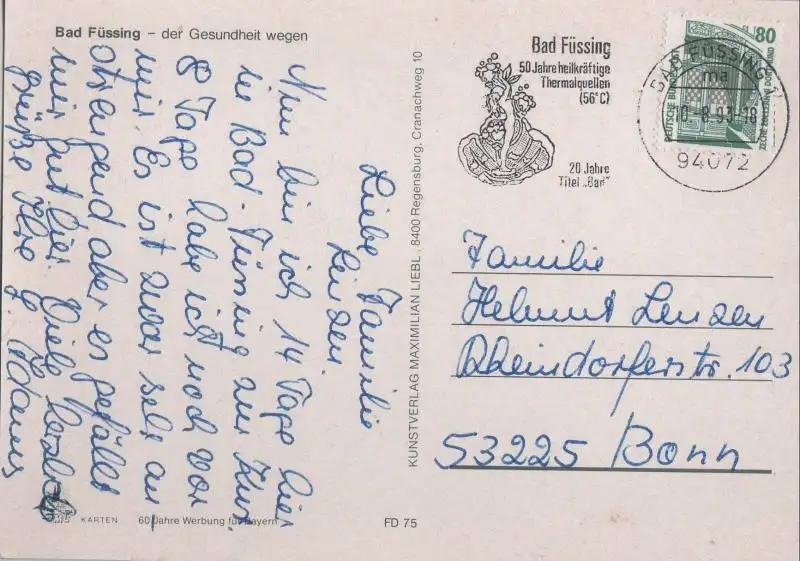 Bad Füssing – der Gesundheit wegen
Liebe Familie
Lenzen.
Nun bin ich 14 Tage hier
in Bad-Füssing zur Kur.
8 Tage habe ich noch vor
mir. Es ist zwar sehr an-
strengend aber es gefällt
mir gut hier. Viele herzliche
Grüße Ihre
KARTEN
60 Jahre Werbung für Bayern
FD 75
KUNSTVERLAG MAXIMILIAN LIEBL, 8400 Regensburg, Cranachweg 10
Bad Füssing
50 Jahre heilkräftige
Thermalquellen
(56°C)
20 Jahre
Titel „Bad"
80
DEUTSCHE BUNDESPOST
ZECHE ZOLLERN II DORTMUND
BAD FÜSSING 1
ma
10.-8.93-18
94072
Familie
Helmut Lenzen
Rheindorferstr. 103
53225 Bonn